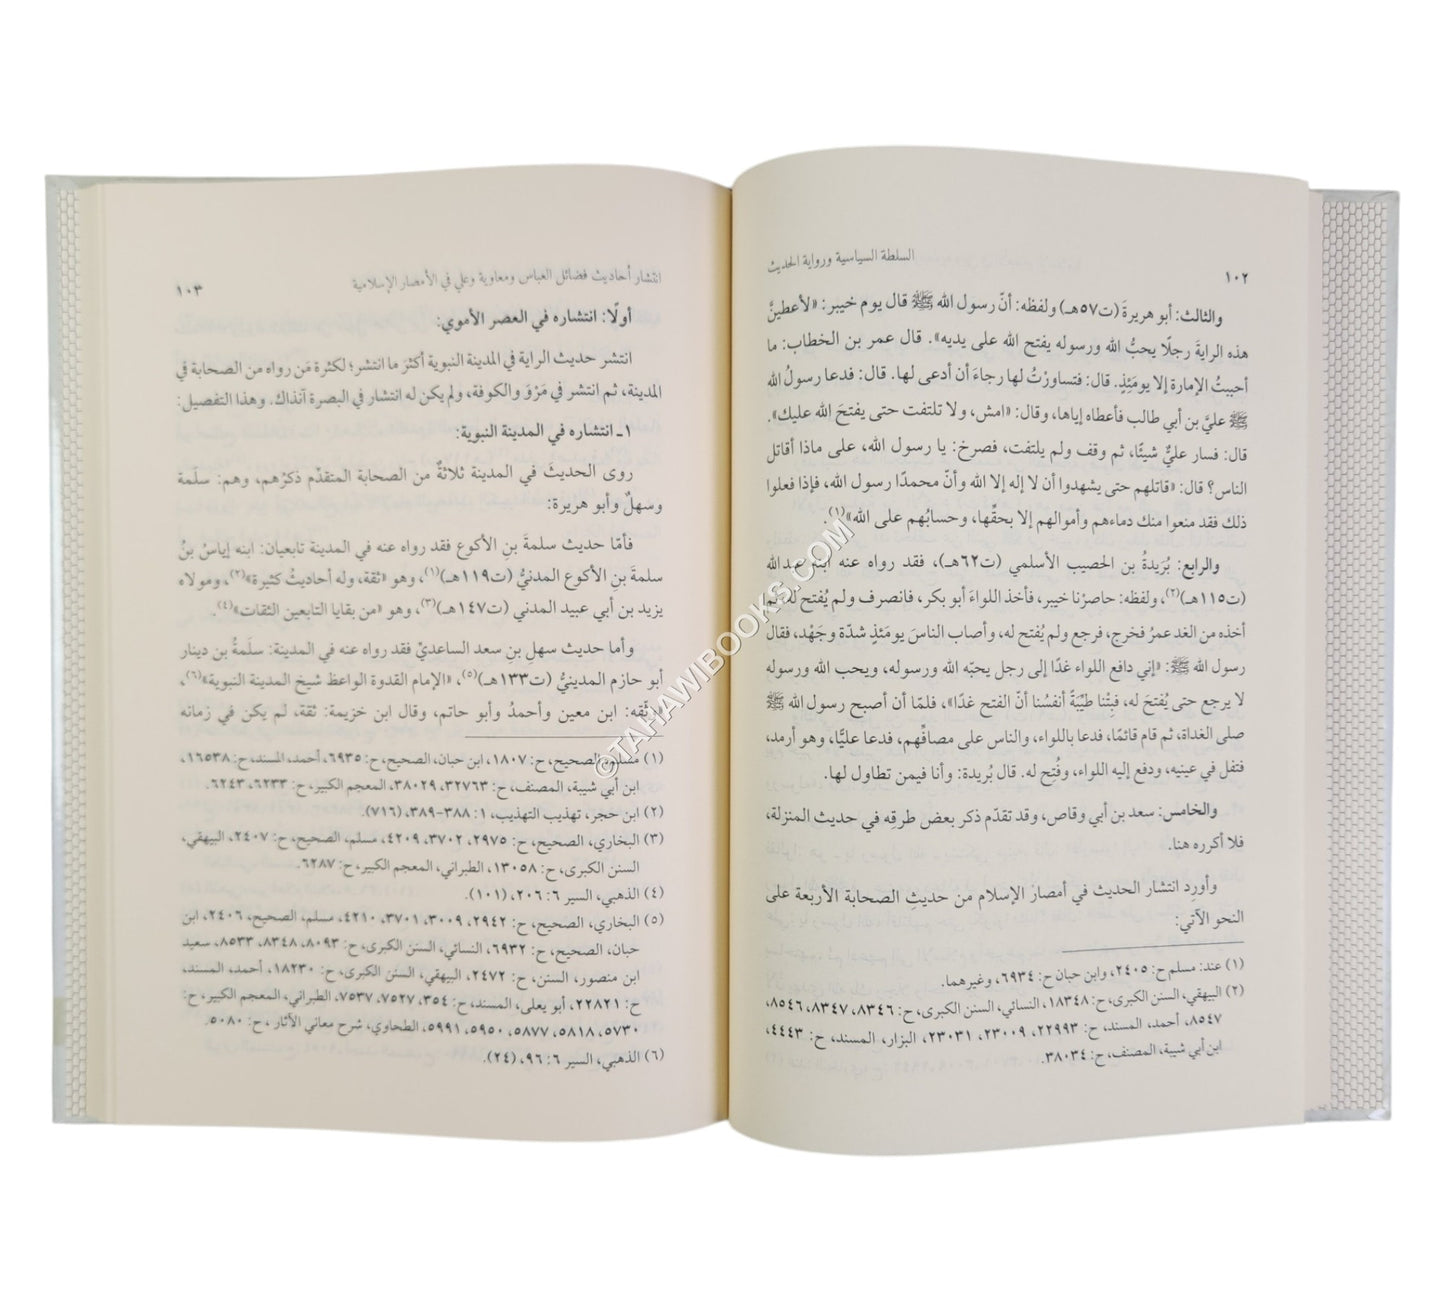 ١٠٢
السلطة السياسية ورواية الحديث
والثالث: أبو هريرةَ (ت٥٧هـ) ولفظه: أنّ رسول الله ﷺ قال يوم خيبر: «لأعطينَّ
هذه الرايةَ رجلًا يحبُّ الله ورسوله يفتح الله على يديه». قال عمر بن الخطاب: ما
أحببتُ الإمارة إلا يومَئِذٍ. قال: فتساورْتُ لها رجاءَ أن أدعى لها. قال: فدعا رسولُ الله
ﷺ عليَّ بن أبي طالب فأعطاه إياها، وقال: «امش، ولا تلتفت حتى يفتحَ الله عليك».
قال: فسار عليٌّ شيئًا، ثم وقف ولم يلتفت، فصرخ: يا رسول الله، على ماذا أقاتل
الناس؟ قال: «قاتلهم حتى يشهدوا أن لا إله إلا الله وأنّ محمدًا رسول الله، فإذا فعلوا
ذلك فقد منعوا منك دماءهم وأموالهم إلا بحقِّها، وحسابُهم على الله»(١).
والرابع: بُرَيدةُ بن الحصيب الأسلمي (ت٦٢هـ)، فقد رواه عنه ابنه عبدالله
(ت١١٥هـ)(٢)، ولفظه: حاصرْنا خيبر، فأخذ اللواءَ أبو بكر، فانصرف ولم يُفتح له، ثم
أخذه من الغد عمرُ فخرج، فرجع ولم يُفتح له، وأصاب الناسَ يومَئذٍ شدّة وجَهْد، فقال
رسول الله ﷺ: «إني دافع اللواء غدًا إلى رجل يحبّه الله ورسوله، ويحب الله ورسوله
لا يرجع حتى يُفتحَ له، فبِتْنا طيِّبَةً أنفسُنا أنّ الفتح غدًا»، فلمّا أن أصبح رسول الله ﷺ
صلى الغداة، ثم قام قائمًا، فدعا باللواء، والناس على مصافِّهم، فدعا عليًّا، وهو أرمد،
فتفل في عينيه، ودفع إليه اللواء، وفُتِح له. قال بُريدة: وأنا فيمن تطاول لها.
والخامس: سعد بن أبي وقاص، وقد تقدّم ذكر بعض طرقِه في حديث المنزلة،
فلا أكرره هنا.
وأورِد انتشار الحديث في أمصار الإسلام من حديثِ الصحابة الأربعة على
النحو الآتي:
(١) عند: مسلم ح: ٢٤٠٥، وابن حبان ح: ٦٩٣٤، وغيرهما.
(٢) البيهقي، السنن الكبرى، ح: ١٨٣٤٨، النسائي، السنن الكبرى، ح: ٨٣٤٦، ٨٣٤٧، ٨٥٤٦،
٨٥٤٧، أحمد، المسند، ح: ٢٢٩٩٣، ٢٣٠٠٩، ٢٣٠٣١، البزار، المسند، ح: ٤٤٤٣،
ابن أبي شيبة، المصنف، ح: ٣٨٠٣٤.
انتشار أحاديث فضائل العباس ومعاوية وعلي في الأمصار الإسلامية
١٠٣
أولًا: انتشاره في العصر الأموي:
انتشر حديث الراية في المدينة النبوية أكثرَ ما انتشر؛ لكثرة مَن رواه من الصحابة في
المدينة، ثم انتشر في مَرْوَ والكوفة، ولم يكن له انتشار في البصرة آنذاك. وهذا التفصيل:
١ـ انتشاره في المدينة النبوية:
روى الحديثَ في المدينة ثلاثةٌ من الصحابة المتقدِّم ذكرُهم، وهم: سلَمة
وسهلٌ وأبو هريرة:
فأمّا حديث سلمةَ بنِ الأكوع فقد رواه عنه في المدينة تابعيان: ابنه إياسُ بنُ
سلمةَ بنِ الأكوع المدنيُّ (ت١١٩هـ)(١)، وهو «ثقة، وله أحاديثُ كثيرة»(٢)، ومولاه
يزيد بن أبي عبيد المدني (ت١٤٧هـ)(٣)، وهو «من بقايا التابعين الثقات»(٤).
وأما حديث سهلِ بنِ سعد الساعديّ فقد رواه عنه في المدينة: سلَمةُ بن دينار
أبو حازم المدينيُّ (ت١٣٣هـ)(٥)، «الإمام القدوة الواعظ شيخ المدينة النبوية»(٦)،
«وثّقه: ابن معين وأحمدُ وأبو حاتم، وقال ابن خزيمة: ثقة، لم يكن في زمانه
(١) مسلم، الصحيح، ح: ١٨٠٧، ابن حبان، الصحيح، ح: ٦٩٣٥، أحمد، المسند، ح: ١٦٥٣٨،
ابن أبي شيبة، المصنف، ح: ٣٢٧٦٣، ٣٨٠٢٩، المعجم الكبير، ح: ٦٢٣٣، ٦٢٤٣.
(٢) ابن حجر، تهذيب التهذيب، ١: ٣٨٨-٣٨٩، (٧١٦).
(٣) البخاري، الصحيح، ح: ٢٩٧٥، ٣٧٠٢، ٤٢٠٩، مسلم، الصحيح، ح: ٢٤٠٧، البيهقي،
السنن الكبرى، ح: ١٣٠٥٨، الطبراني، المعجم الكبير، ح: ٦٢٨٧.
(٤) الذهبي، السير ٦: ٢٠٦، (١٠١).
(٥) البخاري، الصحيح، ح: ٢٩٤٢، ٣٠٠٩، ٣٧٠١، ٤٢١٠، مسلم، الصحيح، ٢٤٠٦، ابن
حبان، الصحيح، ح: ٦٩٣٢، النسائي، السنن الكبرى، ح: ٨٠٩٣، ٨٣٤٨، ٨٥٣٣، سعيد
ابن منصور، السنن، ح: ٢٤٧٢، البيهقي، السنن الكبرى، ح: ١٨٢٣٠، أحمد، المسند،
ح: ٢٢٨٢١، أبو يعلى، المسند، ح: ٣٥٤، ٧٥٢٧، ٧٥٣٧، الطبراني، المعجم الكبير، ح:
٥٧٣٠، ٥٨١٨، ٥٨٧٧، ٥٩٥٠، ٥٩٩١، الطحاوي، شرح معاني الآثار، ح: ٥٠٨٠.
(٦) الذهبي، السير ٦: ٩٦، (٢٤).
©TAHAWIBOOKS.COM